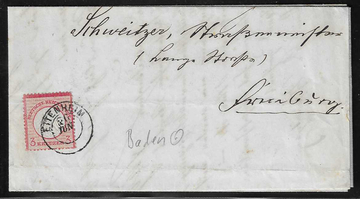 Schweitzer, Straßenmeister
(Lange Straße)
Freiburg.
ETTENHEIM
Baden